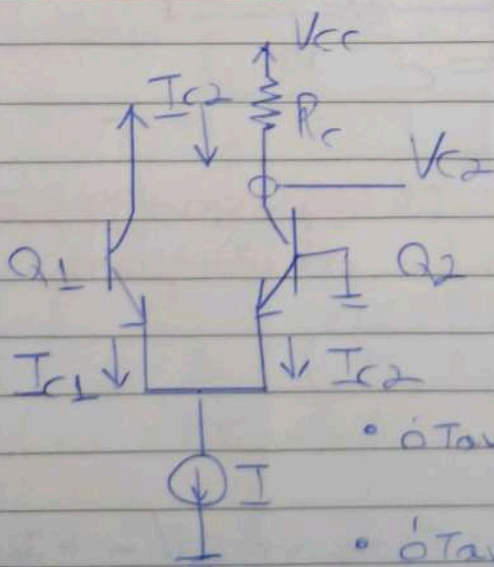 Vcc
Ic2
Rc
Vc2
Q1
Q2
Ic1
Ic2
• όταν
I
• όταν